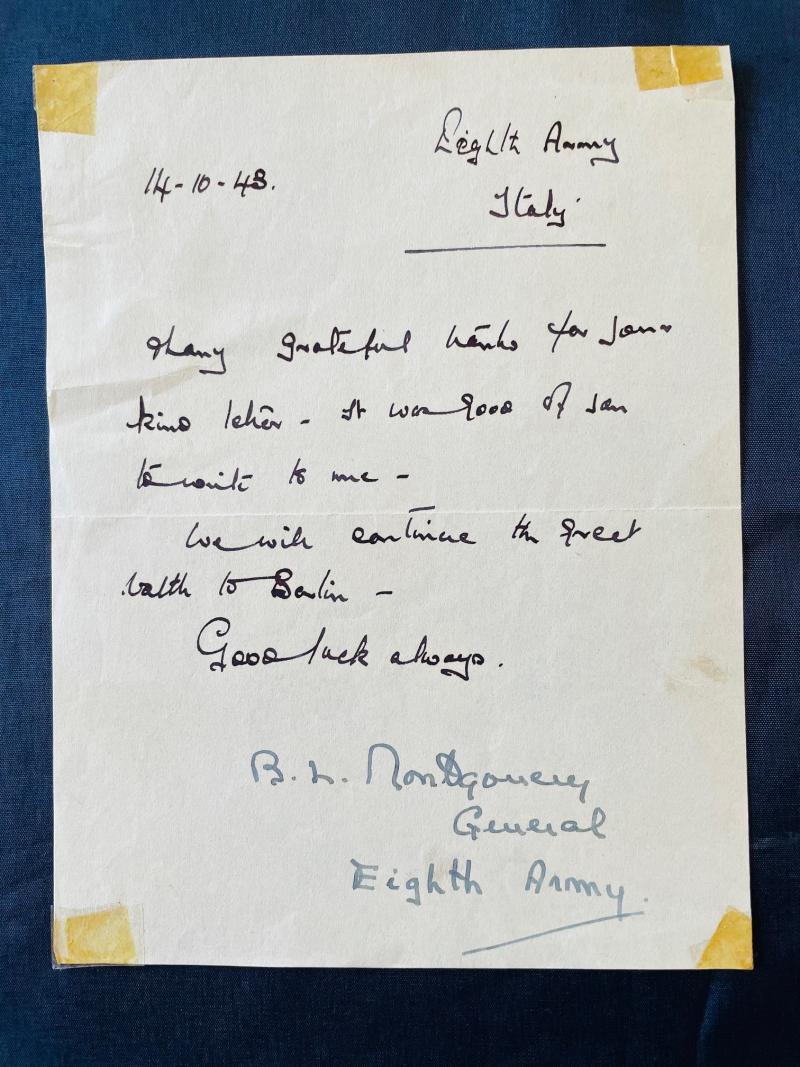 Eighth Army
14-10-43.
Italy.
Many grateful thanks for your
kind letter - It was good of you
to write to me -
We will continue the great
battle to Berlin -
Good luck always.
B. L. Montgomery
General
Eighth Army.